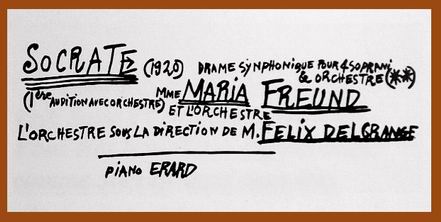 SOCRATE (1920) DRAME SYMPHONIQUE POUR 4 SOPRANI
& ORCHESTRE (**)
(1ère AUDITION AVEC ORCHESTRE) MME MARIA FREUND
ET L'ORCHESTRE
L'ORCHESTRE SOUS LA DIRECTION DE M. FELIX DELGRANGE
PIANO ERARD